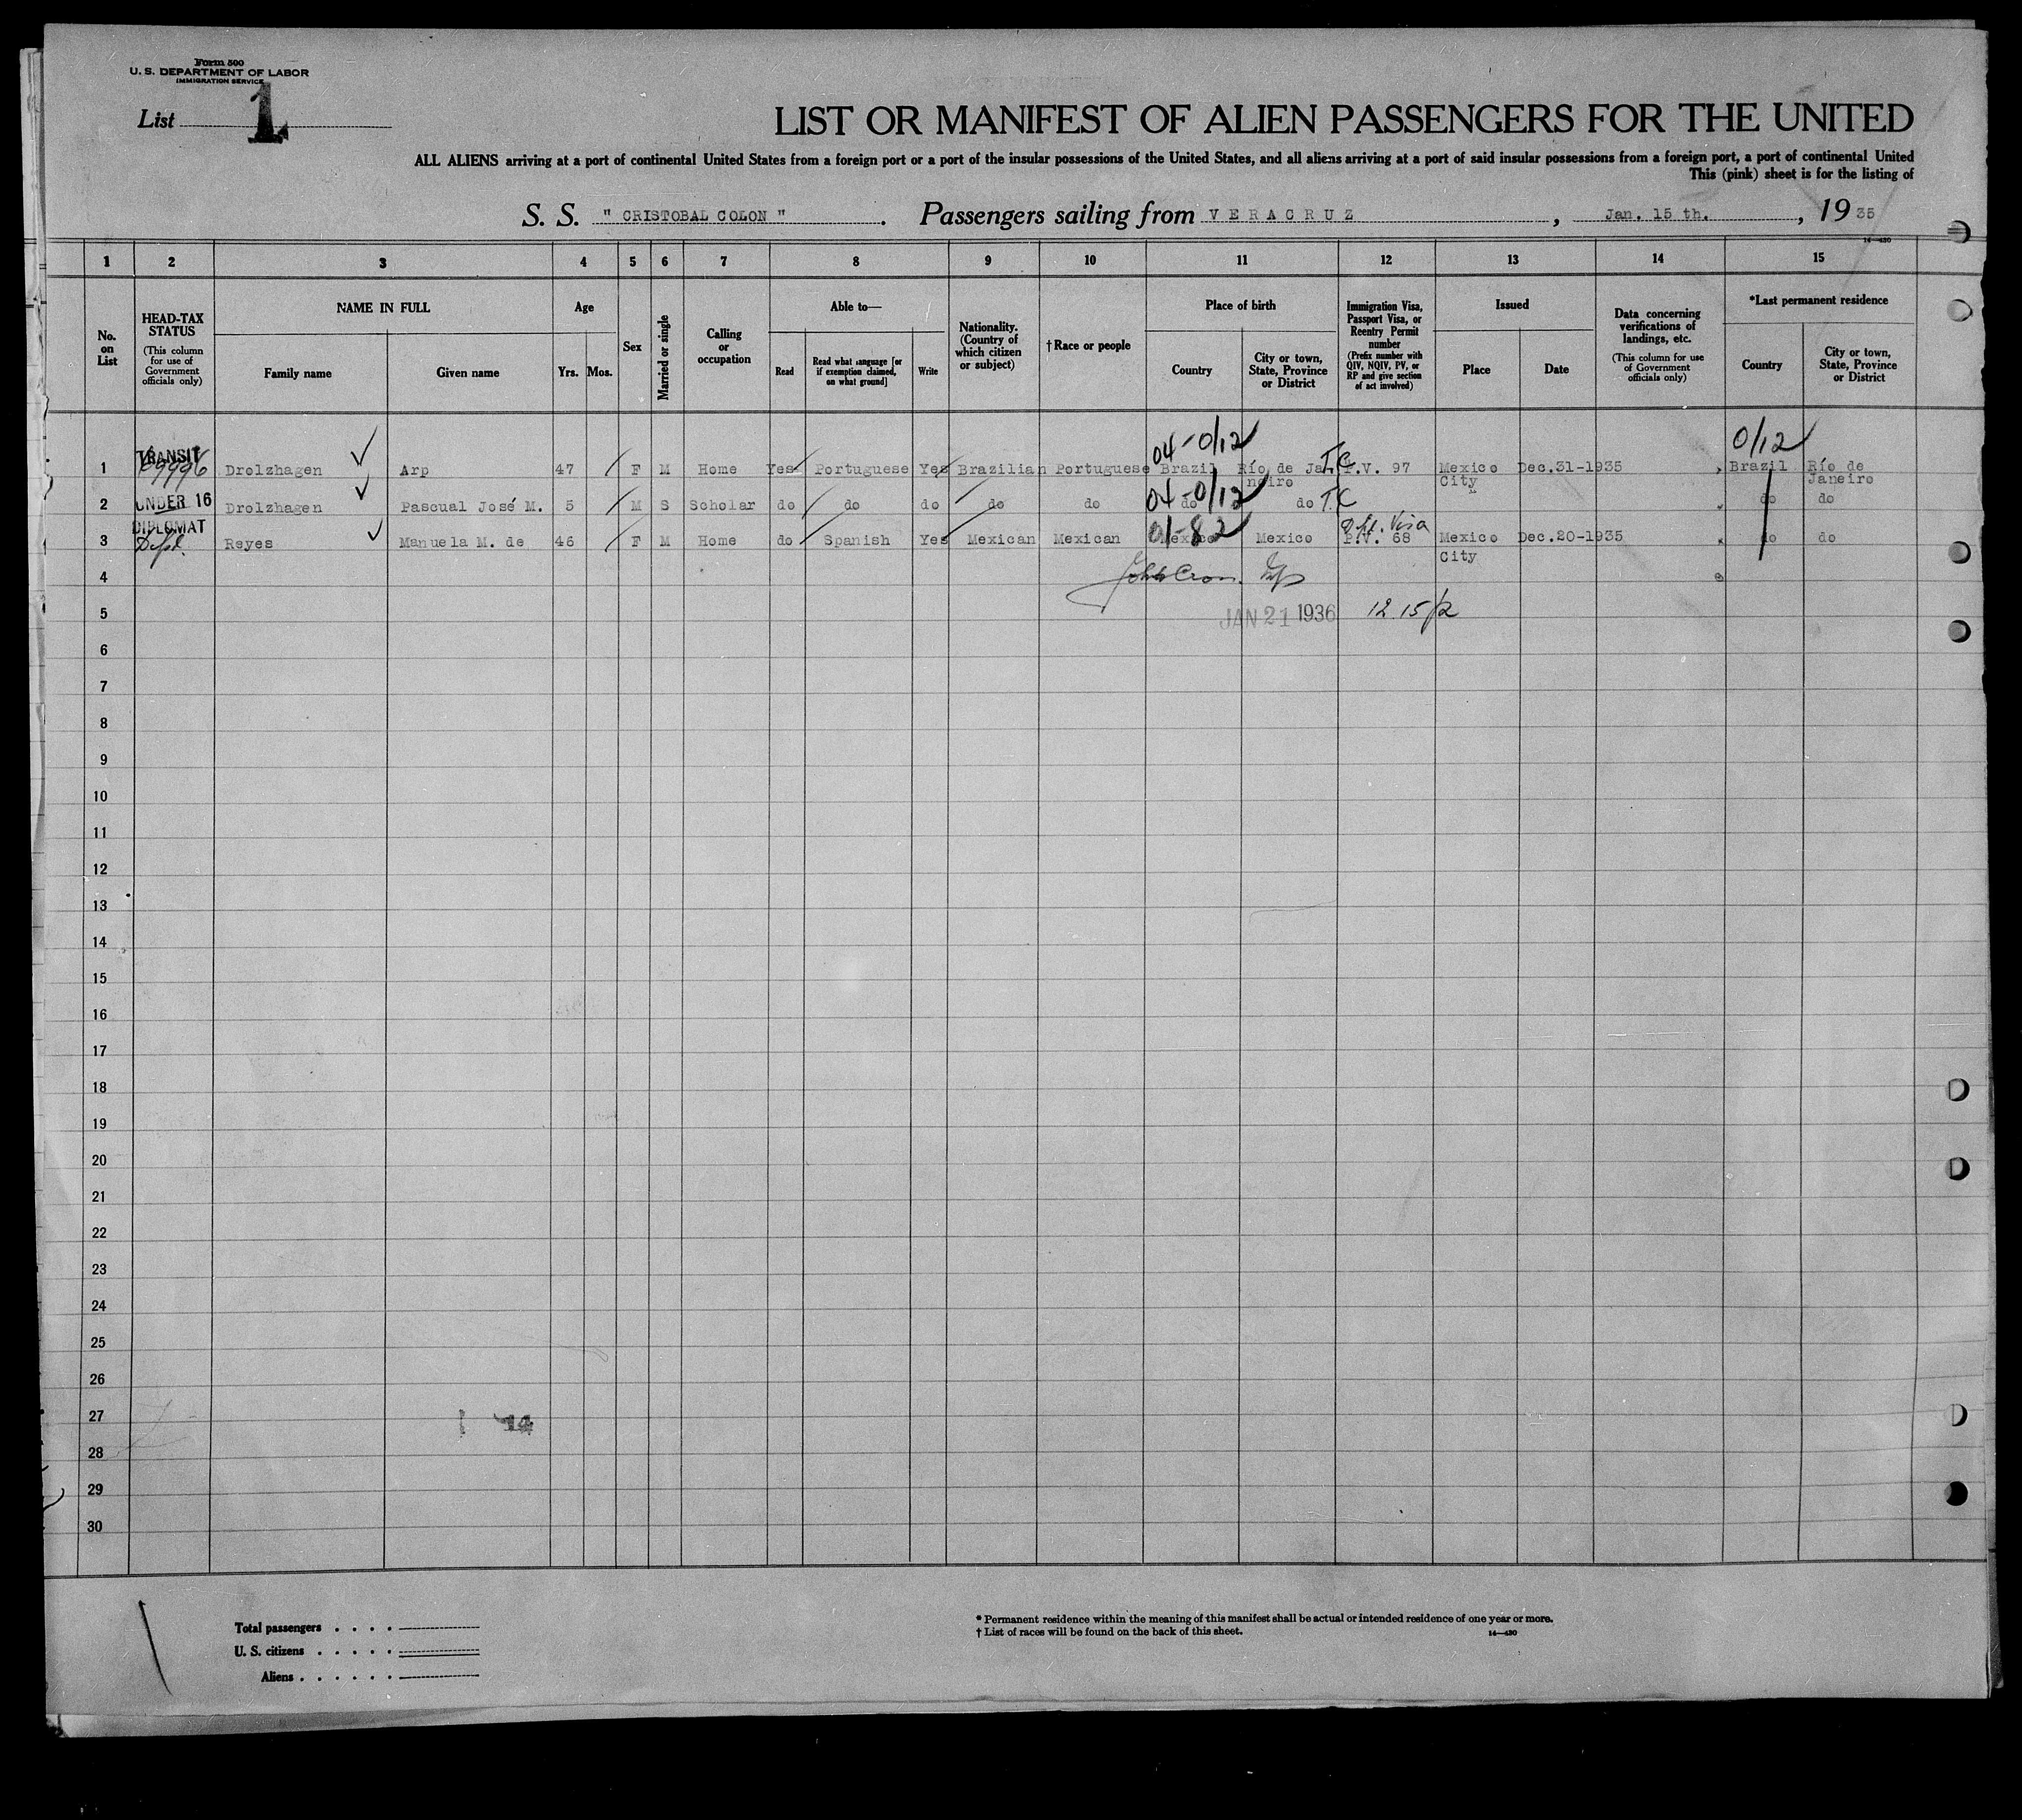 Form 500
U. S. DEPARTMENT OF LABOR
IMMIGRATION SERVICE
List 1
LIST OR MANIFEST OF ALIEN PASSENGERS FOR THE UNITED
ALL ALIENS arriving at a port of continental United States from a foreign port or a port of the insular possessions of the United States, and all aliens arriving at a port of said insular possessions from a foreign port, a port of continental United
This (pink) sheet is for the listing of
S. S. " CRISTOBAL COLON ". Passengers sailing from VERACRUZ, Jan. 15 th., 1935
14—430
1 2 3 4 5 6 7 8 9 10 11 12 13 14 15
No. on List
HEAD-TAX STATUS
(This column for use of Government officials only)
NAME IN FULL
Family name
Given name
Age
Yrs.
Mos.
Sex
Married or single
Calling or occupation
Able to—
Read
Read what language [or if exemption claimed, on what ground]
Write
Nationality. (Country of which citizen or subject)
†Race or people
Place of birth
Country
City or town, State, Province or District
Immigration Visa, Passport Visa, or Reentry Permit number
(Prefix number with QIV, NQIV, PV, or RP and give section of act involved)
Issued
Place
Date
Data concerning verifications of landings, etc.
(This column for use of Government officials only)
*Last permanent residence
Country
City or town, State, Province or District
04-0/12 0/12
1 TRANSIT 69996 Drolzhagen Arp 47 F M Home Yes Portuguese Yes Brazilian Portuguese Brazil Río de Janeiro T.C. P.V. 97 Mexico City Dec.31-1935 Brazil Río de Janeiro
2 UNDER 16 Drolzhagen Pascual José M. 5 M S Scholar do do do do do 04-0/12 do do T.C do do
3 DIPLOMAT Dipl. Reyes Manuela M. de 46 F M Home do Spanish Yes Mexican Mexican 01-82 Mexico Mexico Dipl. Visa P.V. 68 Mexico City Dec.20-1935 do do
4
5 JAN 21 1936 12.15
6
7
8
9
10
11
12
13
14
15
16
17
18
19
20
21
22
23
24
25
26
27 14
28
29
30
Total passengers . . . .
U. S. citizens . . . . .
Aliens . . . . . .
* Permanent residence within the meaning of this manifest shall be actual or intended residence of one year or more.
† List of races will be found on the back of this sheet.
14—430